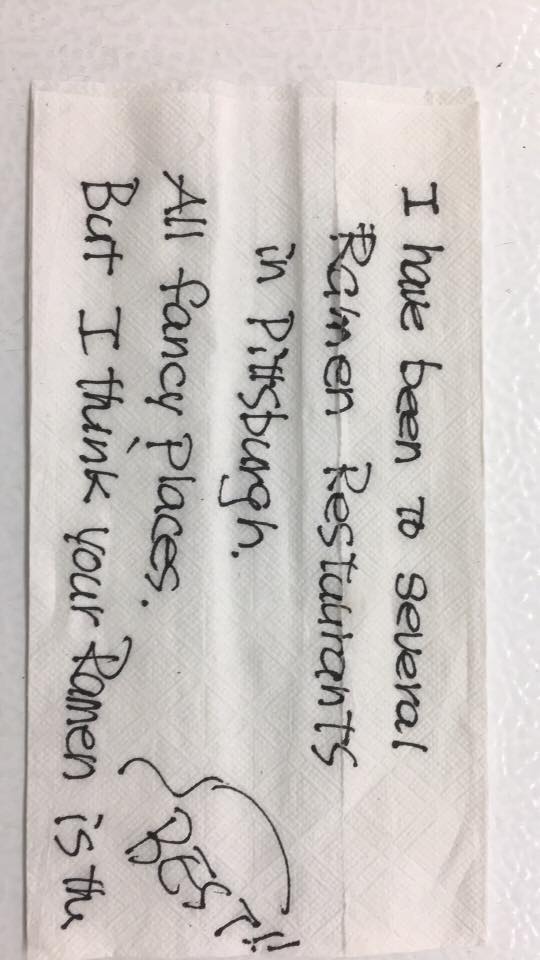 I have been to several
Ramen Restaurants
in Pittsburgh.
All fancy places.
But I think your Ramen is the
BEST!!